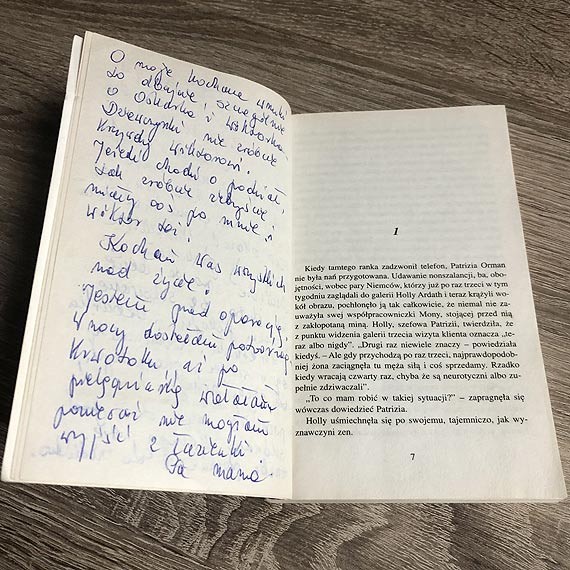 O moje kochane wnuki
to dbajcie i szczególnie
o Oskarka i Wiktorka.
Dziewczynki nie zróbcie
krzywdy Wiktorowi.
Jeżeli chodzi o podział,
tak zróbcie żebyście
miały coś po mnie i
Wiktor też!
Kocham was wszystkich
nad życie!
Jestem przed operacją
W nocy dostałam potwornego
krwotoku, aż po
pielęgniarkę wołałam
pomagać nie mogłam
wyjść z łazienki
Pa mama
1
Kiedy tamtego ranka zadzwonił telefon, Patrizia Orman
nie była nań przygotowana. Udawanie nonszalancji, ba, obo-
jętności, wobec pary Niemców, którzy już po raz trzeci w tym
tygodniu zaglądali do galerii Holly Ardath i teraz krążyli wo-
kół obrazu, pochłonęło ją tak całkowicie, że niemal nie za-
uważyła swej współpracowniczki Mony, stojącej przed nią
z zakłopotaną miną. Holly, szefowa Patrizii, twierdziła, że
z punktu widzenia galerii trzecia wizyta klienta oznacza „te-
raz albo nigdy”. „Drugi raz niewiele znaczy – powiedziała
kiedyś. – Ale gdy przychodzą po raz trzeci, najprawdopodob-
niej żona zaciągnęła tu męża siłą i coś sprzedamy. Rzadko
kiedy wracają czwarty raz, chyba że są neurotyczni albo zu-
pełnie zdziwaczali”.
„To co mam robić w takiej sytuacji?” – zapragnęła się
wówczas dowiedzieć Patrizia.
Holly uśmiechnęła się po swojemu, tajemniczo, jak wy-
znawczyni zen.
7